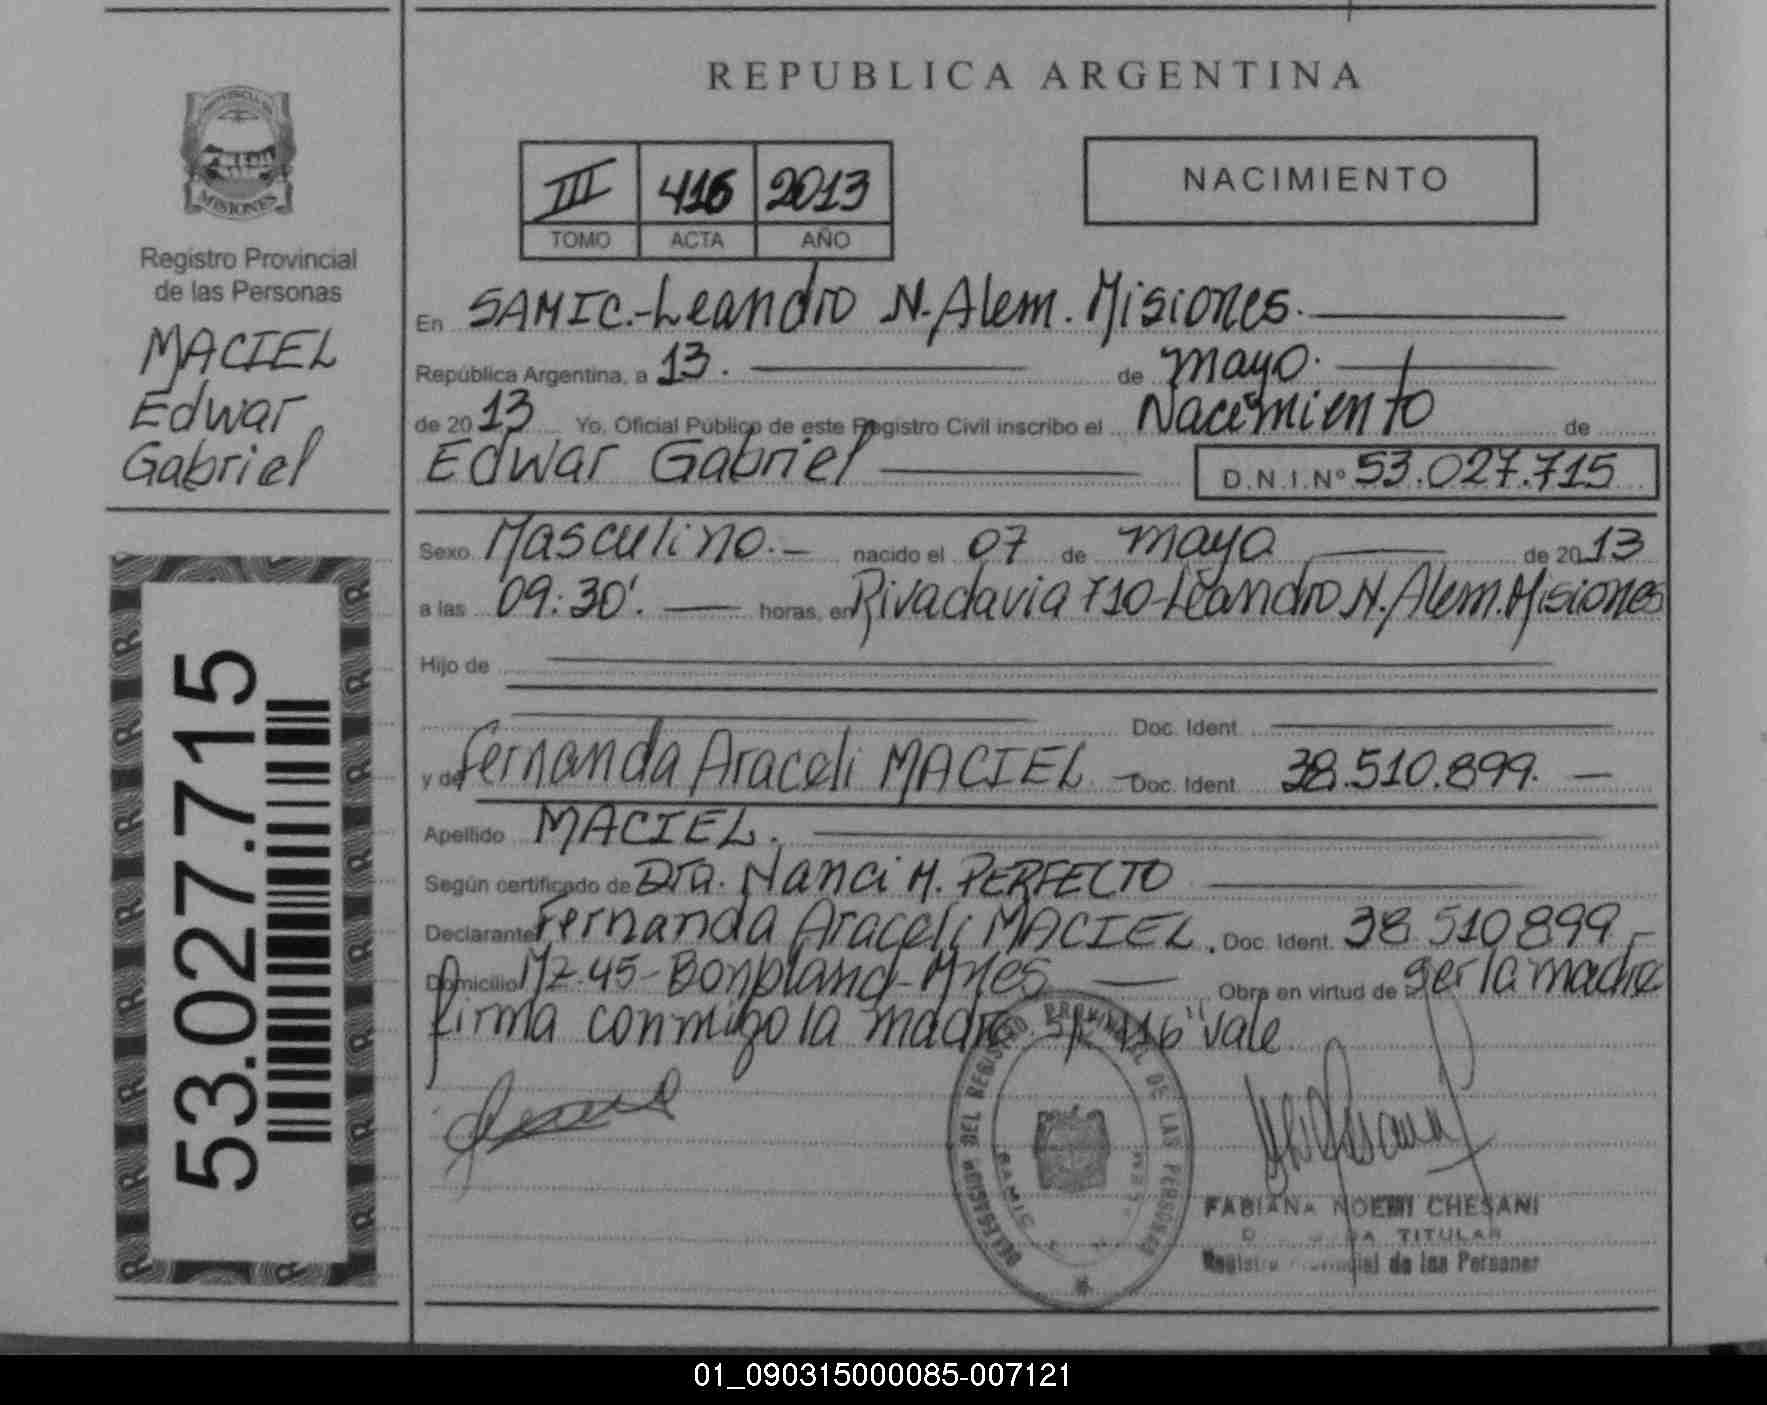 REPUBLICA ARGENTINA
MISIONES
Registro Provincial
de las Personas
MACIEL
Edwar
Gabriel
53.027.715
III 416 2013
TOMO ACTA AÑO
NACIMIENTO
En SAMIC.-Leandro N. Alem. Misiones.
República Argentina, a 13. de mayo.
de 2013 Yo, Oficial Público de este Registro Civil inscribo el Nacimiento de
Edwar Gabriel D.N.I.Nº 53.027.715
Sexo Masculino.- nacido el 07 de mayo de 2013
a las 09:30'. horas, en Rivadavia 710-Leandro N. Alem. Misiones
Hijo de
Doc. Ident.
y de Fernanda Araceli MACIEL. Doc. Ident. 38.510.899.
Apellido MACIEL.
Según certificado de Dra. Nanci M. PERFECTO
Declarante Fernanda Araceli MACIEL. Doc. Ident. 38.510.899
Domicilio Mz.45-Bonpland-Mnes Obra en virtud de ser la madre
firma conmigo la madre. S/R "416" vale
DELEGACION DEL REGISTRO PROVINCIAL DE LAS PERSONAS
SAMIC
ALEM
FABIANA NOEMI CHESANI
TITULAR
Registro Provincial de las Personas
01_090315000085-007121